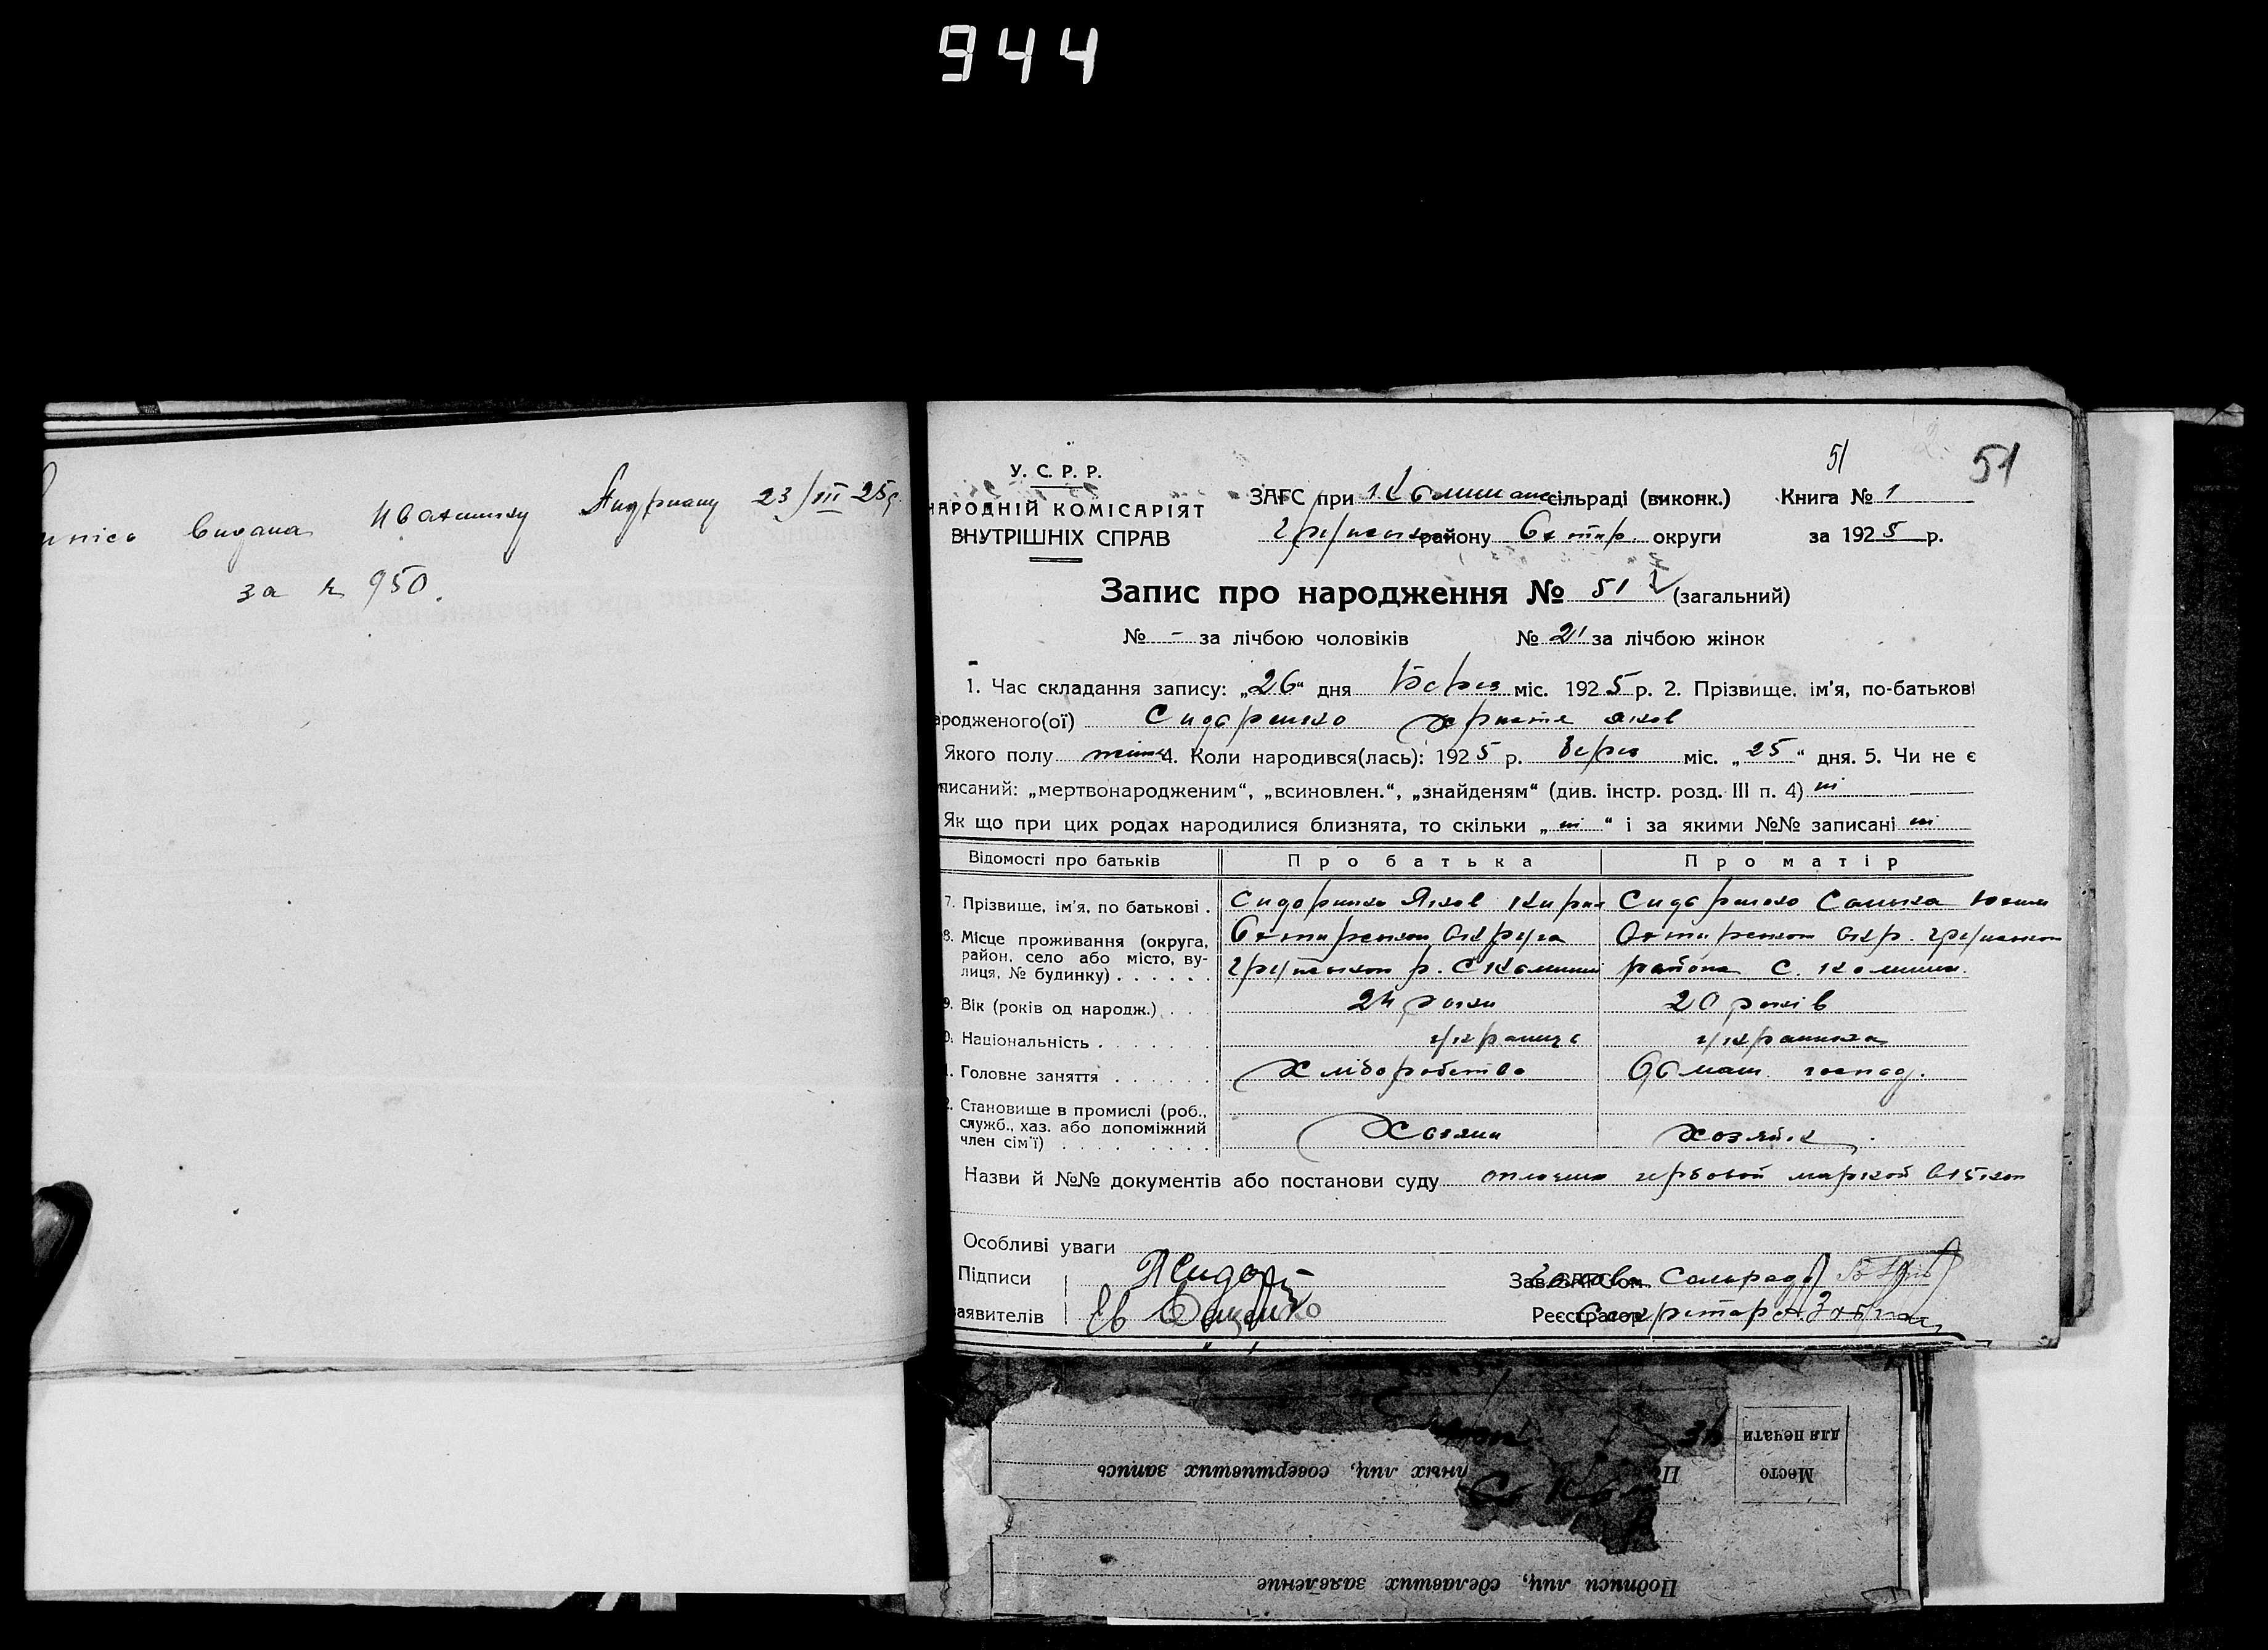 944
видана Ивахненку Андриану 23/III 25р.
за № 950.
51
51
У. С. Р. Р.
НАРОДНІЙ КОМІСАРІЯТ
ВНУТРІШНІХ СПРАВ
ЗАГС при сільраді (виконк.) Книга № 1
району Охтир. округи за 1925 р.
Запис про народження № 51 (загальний)
№ - за лічбою чоловіків № 21 за лічбою жінок
1. Час складання запису: „26“ дня Берез міс. 1925 р. 2. Прізвище, ім'я, по-батькові
народженого(ої) Сидоренко Христя Яков
Якого полу жіноч 4. Коли народився(лась): 1925 р. берез міс. „25“ дня. 5. Чи не є
писаний: „мертвонародженим“, „всиновлен.“, „знайденям“ (див. інстр. розд. III п. 4) ні
Як що при цих родах народилися близнята, то скільки „ні“ і за якими №№ записані ні
Відомості про батьків Про батька Про матір
7. Прізвище, ім'я, по батькові . Сидоренко Яков Кирил Сидоренко
8. Місце проживання (округа, район, село або місто, вулиця, № будинку) . . . . . .
Охтирськои округа Охтирськои окр.
р. С района С.
9. Вік (років од народж.) . . . 24 роки 20 років
0. Національність . . . . . . . украинец украинка
1. Головне заняття . . . . . . Хліборобство Домаш господ.
2. Становище в промислі (роб.,
служб., хаз. або допоміжний
член сім'ї) . . . . . . . . . Хозяин хозяйка
Назви й №№ документів або постанови суду оплочено гербовой маркой в 15 коп
Особливі уваги
Підписи Я Сидор
Зав. ЗАГСом Голова Сельради
заявителів
Реєстратор Секретарь
Место
для печати
ных лиц, совершивших запись
Подписи лиц, сделавших заявление